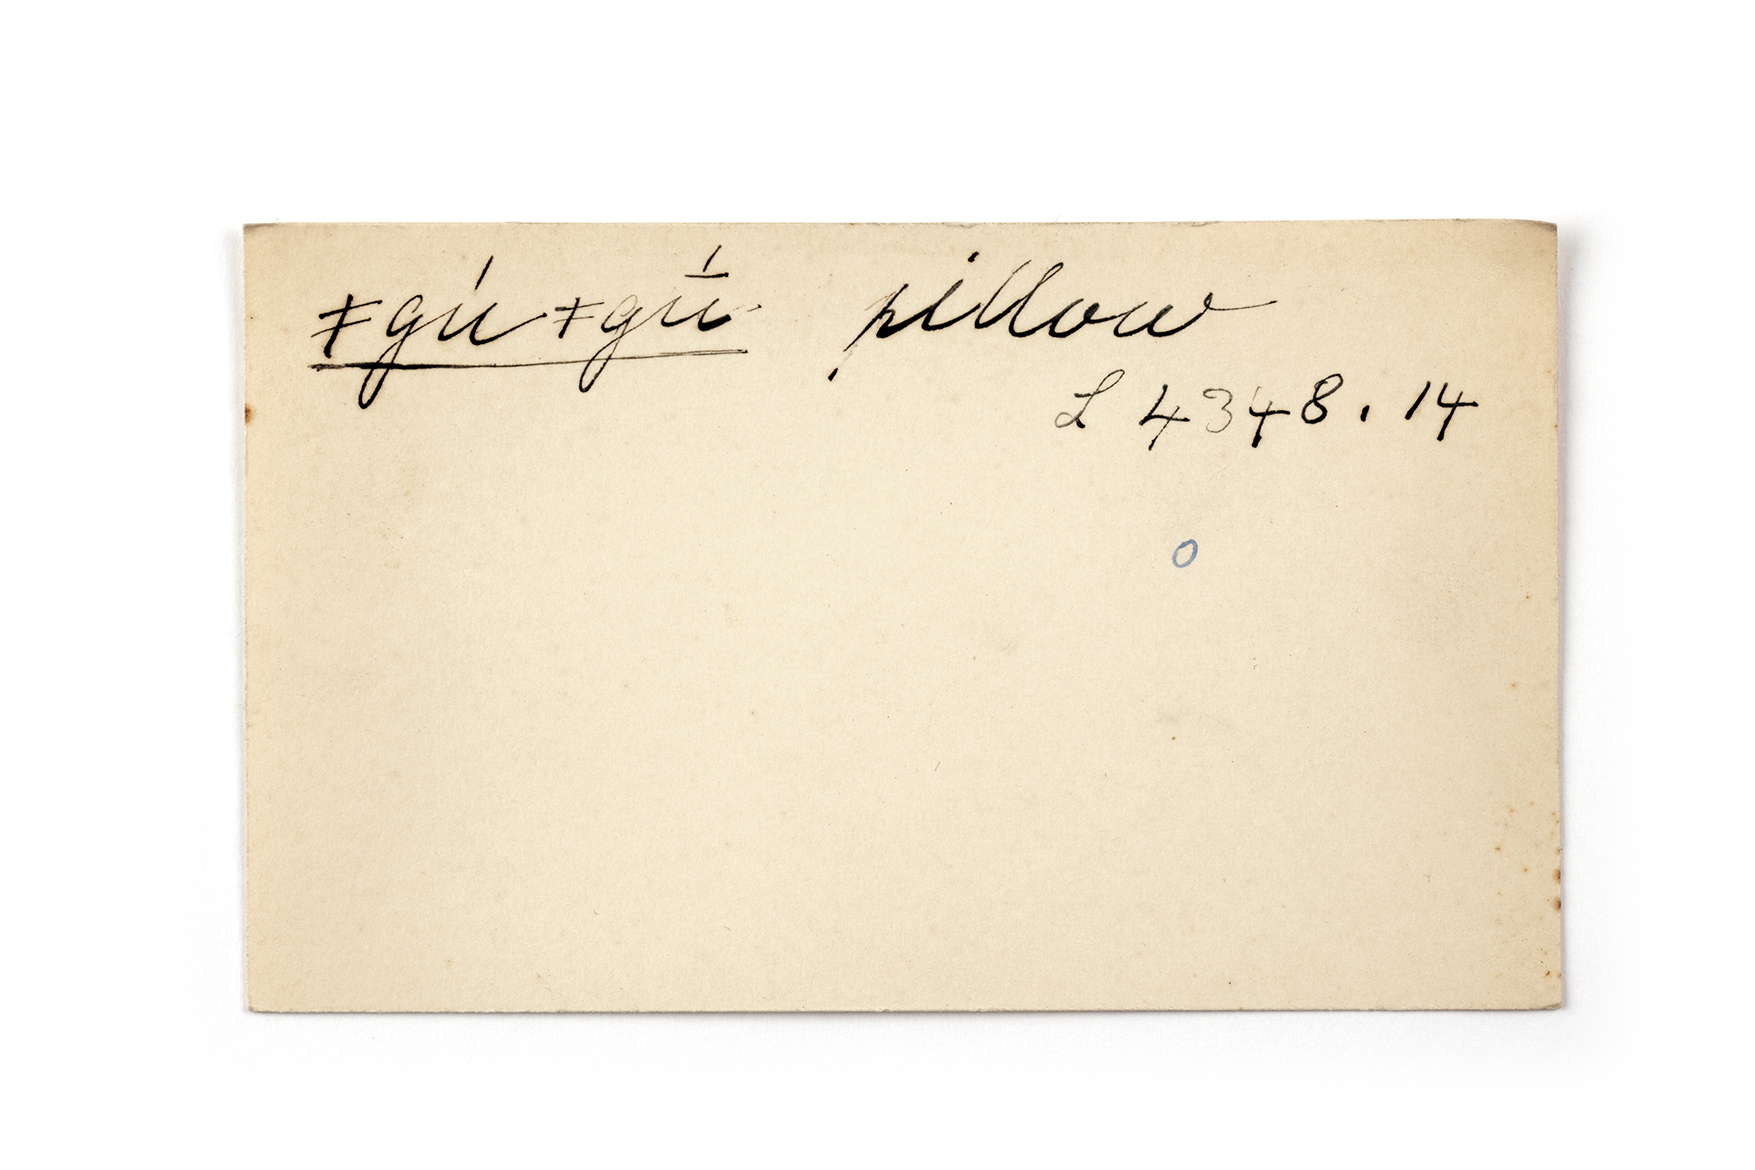 ǂgú ǂgū́ pillow
L 4348.14
o